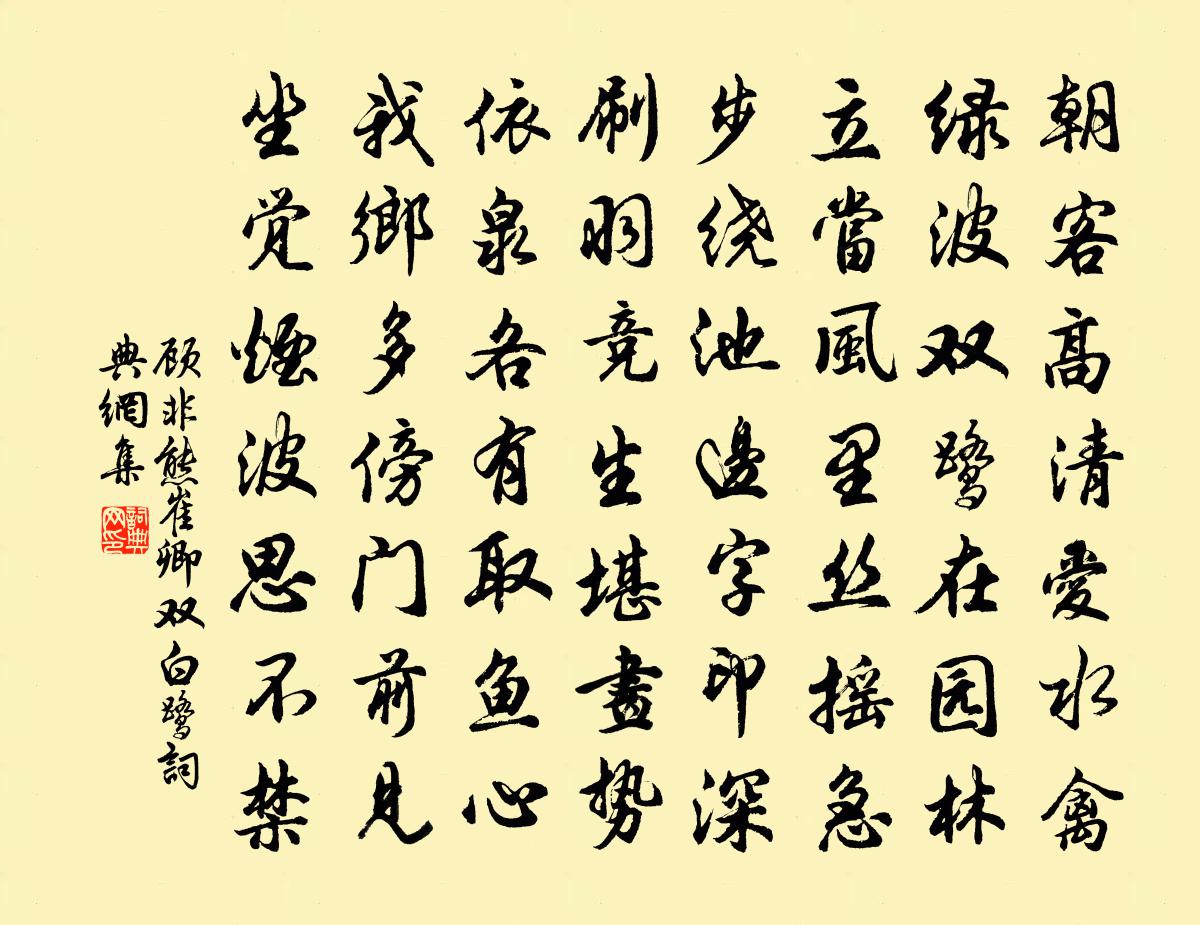 朝客高清愛水禽
绿波双鹭在园林
立當風里丝摇急
步绕池邊字印深
刷羽竞生堪畫势
依泉各有取鱼心
我鄉多傍门前见
坐觉煙波思不禁
顾非熊崔卿双白鹭詞
典網集
詞典
网印